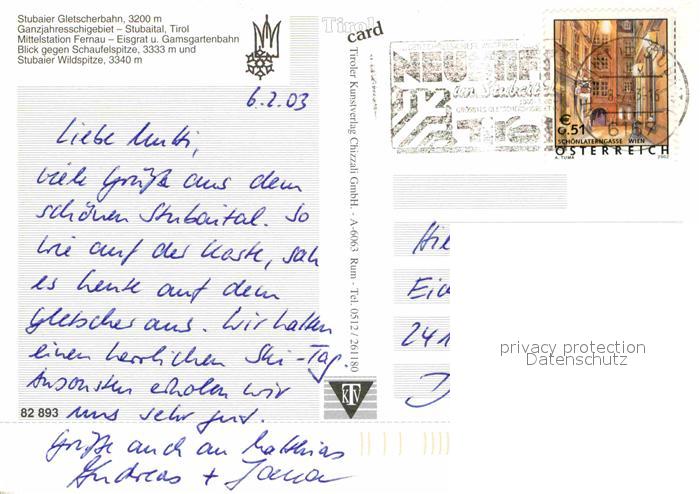 Stubaier Gletscherbahn, 3200 m
Ganzjahresschigebiet – Stubaital, Tirol
Mittelstation Fernau – Eisgrat u. Gamsgartenbahn
Blick gegen Schaufelspitze, 3333 m und
Stubaier Wildspitze, 3340 m
Tirol
card
6.2.03
Liebe Mutti,
viele Grüße aus dem
schönen Stubaital. So
wie auf der Karte, sah
es heute auf dem
Gletscher aus. Wir hatten
einen herrlichen Ski-Tag.
Ansonsten erholen wir
uns sehr gut.
Grüße auch an Matthias
Andreas + Jana
82 893
Tiroler Kunstverlag Chizzali GmbH. - A-6063 Rum - Tel. 0512 / 261180
KTV
NEUSTIFT
im Stubaital
6167
€
0.51
SCHÖNLATERNGASSE WIEN
ÖSTERREICH
A. TUMA
2002
241
D
privacy protection
Datenschutz